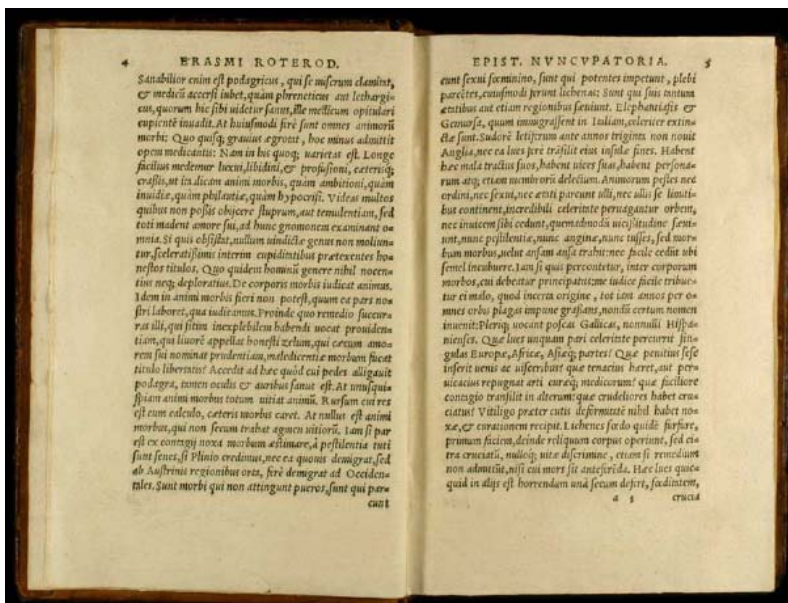 4 ERASMI ROTEROD.
Sanabilior enim est podagricus, qui se miserum clamitat,
& medicū accersi iubet, quàm phreneticus aut lethargi=
cus, quorum hic sibi uidetur sanus, ille medicum opitulari
cupientē inuadit. At huiusmodi ferè sunt omnes animorū
morbi: Quo quisq; grauius ægrotat, hoc minus admittit
opem medicantis: Nam in his quoq; uarietas est. Longe
facilius medemur luxui, libidini, & profusioni, cæterisq;
crassis, ut ita dicam animi morbis, quàm ambitioni, quàm
inuidiæ, quàm philautiæ, quàm hypocrisi. Videas multos
quibus non possis obijcere stuprum, aut temulentiam, sed
toti madent amore sui, ad hunc gnomonem examinant o=
mnia. Si quis obsistat, nullum uindictæ genus non moliun=
tur, sceleratissimis interim cupiditatibus prætexentes ho=
nestos titulos. Quo quidem hominū genere nihil nocen=
tius neq; deploratius. De corporis morbis iudicat animus.
Idem in animi morbis fieri non potest, quum ea pars no=
stri laboret, qua iudicamus. Proinde quo remedio succur=
ras illi, qui sitim inexplebilem habendi uocat prouiden=
tiam, qui liuorē appellat honesti zelum, qui cæcum amo=
rem sui nominat prudentiam, maledicentiæ morbum fucat
titulo libertatis? Accedit ad hæc quòd cui pedes alligauit
podagra, tamen oculis & auribus sanus est. At unusqui=
spiam animi morbus totum uitiat animū. Rursum cui res
est cum calculo, cæteris morbis caret. At nullus est animi
morbus, qui non secum trahat agmen uitiorū. Iam si par
est ex contagij noxa morbum æstimare, à pestilentia tuti
sunt senes, si Plinio credimus, nec ea quouis demigrat, sed
ab Austrinis regionibus orta, ferè demigrat ad Occiden=
tales. Sunt morbi qui non attingunt pueros, sunt qui par=
cunt
EPIST. NVNCVPATORIA. 5
cunt sexui fœminino, sunt qui potentes impetunt, plebi
parcētes, cuiusmodi ferunt lichenas: Sunt qui suis tantum
ætatibus aut etiam regionibus sæuiunt. Elephantiasis &
Gemursa, quum immigrassent in Italiam, celeriter extin=
ctæ sunt. Sudorē letiferum ante annos triginta non nouit
Anglia, nec lues ferè trāsilit eius insulæ fines. Habent
hæc mala tractus suos, habent uices suas, habent persona=
rum atq; etiam membrorū delectum. Animorum pestes nec
ordini, nec sexui, nec ætati parcunt ulli, nec ullis se limiti=
bus continent, incredibili celeritate peruagantur orbem,
nec inuicem sibi cedunt, quemadmodū uicissitudine sæui=
unt, nunc pestilentiæ, nunc anginæ, nunc tusses, sed mor=
bum morbus, uelut ansam ansa trahit: nec facile cedūt ubi
semel incubuere. Iam si quis percontetur, inter corporum
morbos, cui debeatur principatus: me iudice facile tribue=
tur ei malo, quod incerta origine, tot iam annos per o=
mnes orbis plagas impune grassans, nondū certum nomen
inuenit: Pleriq; uocant poscas Gallicas, nonnulli Hispa=
nienses. Quæ lues unquam pari celeritate percurrit sin=
gulas Europæ, Africæ, Asiæq; partes? Quæ penitius sese
inserit uenis ac uisceribus? quæ tenacius hæret, aut per=
uicacius repugnat arti curæq; medicorum? quæ faciliore
contagio transilit in alterum? quæ crudeliores habet cru=
ciatus? Vitiligo præter cutis deformitatē nihil habet no=
xæ, & curationem recipit. Lichenes fœdo quidē furfure,
primum faciem, deinde reliquum corpus operiunt, sed ci=
tra cruciatū, nulloq; uitæ discrimine, etiam si remedium
non admittūt, nisi cui mors sit anteferēda. Hæc lues quic=
quid in alijs est horrendum unà secum defert, fœditatem,
a 3 crucia